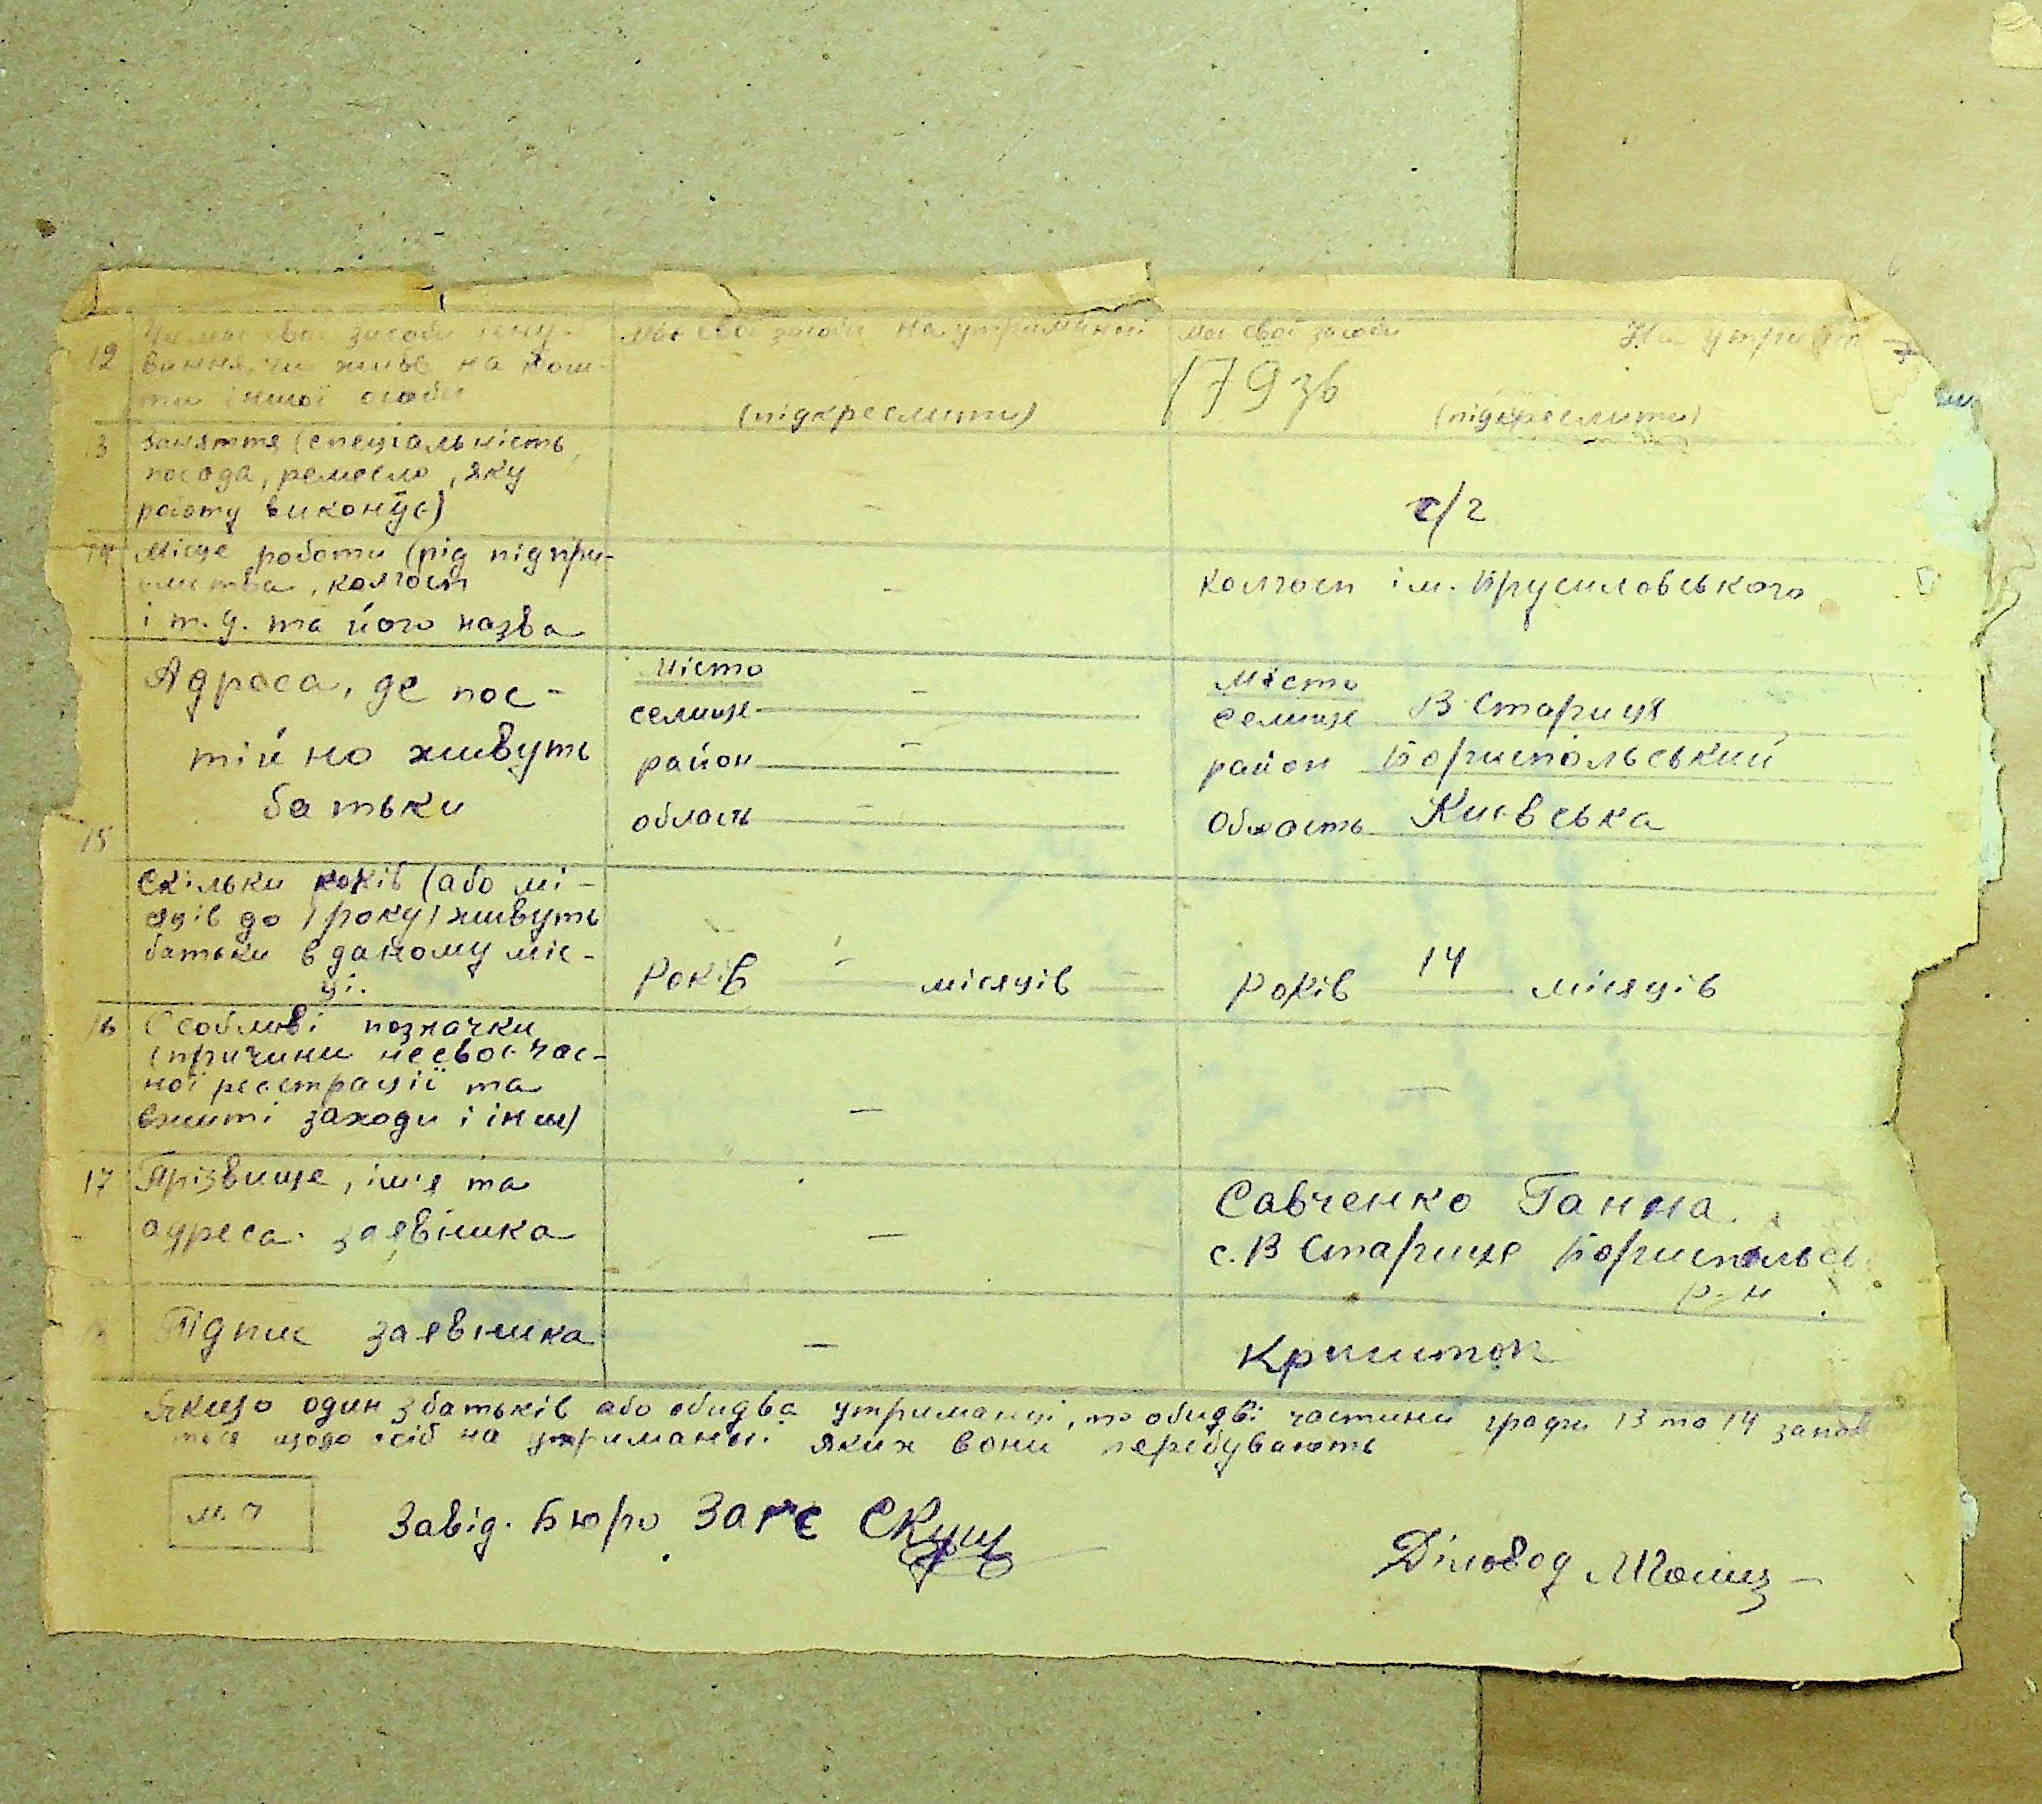 12 Чи має свої засоби існу-
вання, чи живе на кош-
ти іншої особи
має свої засоби на утриманні
(підкреслити)
має свої засоби На утри
179 зв
(підкреслити)
13 Заняття (спеціальність,
посада, ремесло, яку
роботу виконує)
-
с/г
14 Місце роботи (рід підпри-
ємства, колгосп
і т.д. та його назва
-
колгосп ім. Брусиловського
15 Адреса, де пос-
тійно живуть
батьки
місто
селище -
район -
область -
Місто
селище В Стариця
район Бориспольський
Область Київська
Скільки років (або мі-
сяців до 1 року) живуть
батьки в даному міс-
ці.
Років - місяців -
Років 14 місяців
16 Особливі позначки
(причини несвоєчас-
ної реєстрації та
вжиті заходи і інш)
-
-
17 Прізвище, ім'я та
адреса заявника
-
Савченко Ганна
с. В Стариця Бориспольсь
р-н
Підпис заявника
-
Якщо один з батьків або обидва утриманці, то обидві частини графи 13 та 14 запов
ться щодо осіб на утриманні яких вони перебувають
м. п
Завід. Бюро Загс
Діловод